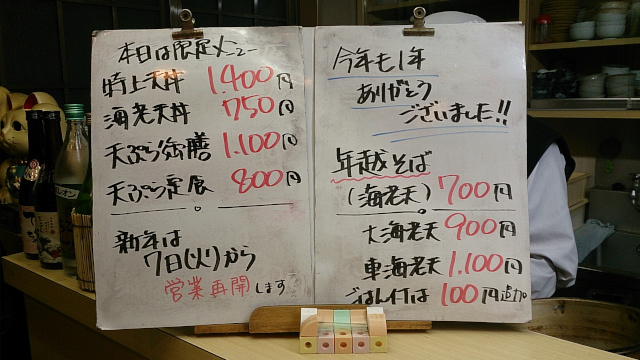 本日は限定メニュー
特上天丼 1.400円
海老天丼 750円
天ぷら御膳 1.100円
天ぷら定食 800円
新年は
7日(火)から
営業再開します
今年も1年
ありがとう
ございました!!
年越そば
(海老天) 700円
大海老天 900円
車海老天 1.100円
ごはん付は 100円追加